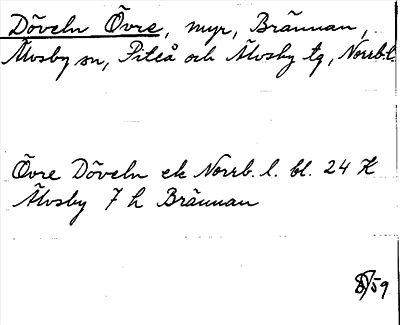 Döveln Övre, myr, Brännan,
Älvsby sn, Piteå och Älvsby tg, Norrb.l.
Övre Döveln ek Norrb. l. bl. 24 K
Älvsby 7 h Brännan
/59